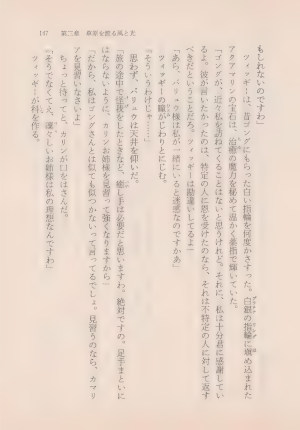 147　第二章　草原を渡る風と光
もしれないのですわ」
ツィッギーは、昔ゴングにもらった白い指輪を何度かさすった。白銀の指輪に嵌め込まれた
アクアマリンの宝石は、治癒の魔力を秘めて温かく薬指で輝いていた。
「ゴングが、近々私を訪ねてくることはないと思うけれど。それに、私は十分君に感謝してい
るよ。彼が言いたかったのは、特定の人に恩を受けたのなら、それは不特定の人に対して返す
べきだということだろう。ツィッギーは勘違いしてるよ」
「あら、バリュウ様は私が一緒にいると迷惑なのですかあ」
ツィッギーの瞳がじわりとにじむ。
「そういうわけじゃ……」
思わず、バリュウは天井を仰いだ。
「旅の途中で怪我をしたときなど、癒し手は必要だと思いますわ。絶対ですの。足手まといに
はならないように、カリンお姉様を見習って強くなりますから」
「だから、私はゴングさんとは似ても似つかないって言ってるでしょ。見習うのなら、カマリ
アを見習いなさいよ」
ちょっと待ってと、カリンが口をはさんだ。
「そうでなくてえ、凛々しいお姉様は私の理想なんですわ」
ツィッギーが科を作る。